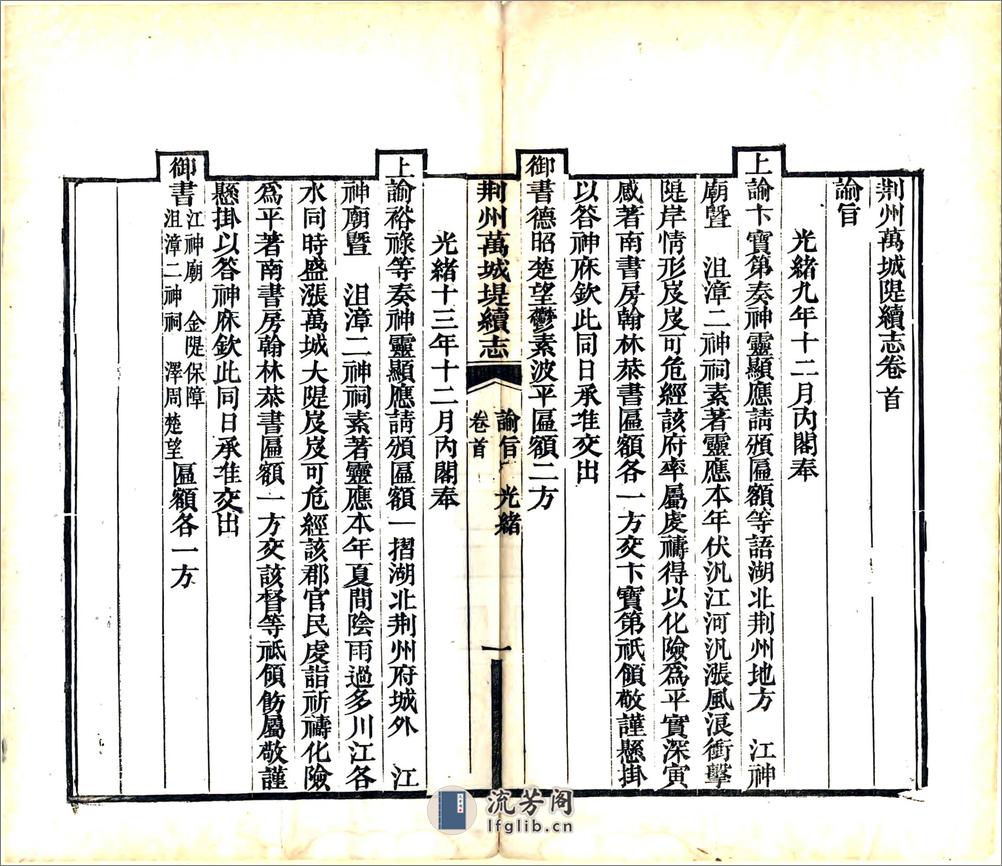 荆州萬城隄續志卷首
諭旨
光緒九年十二月內閣奉
上諭卞寶第奏神靈顯應請頒匾額等語湖北荆州地方　江神
廟暨　沮漳二神祠素著靈應本年伏汛江河汎漲風浪衝擊
隄岸情形岌岌可危經該府率屬虔禱得以化險爲平實深寅
感著南書房翰林恭書匾額各一方交卞寶第祇領敬謹懸掛
以答神庥欽此同日承准交出
御書德昭楚望鬱素波平匾額二方
荆州萬城堤續志
卷首
諭旨　光緒
一
光緒十三年十二月內閣奉
上諭裕祿等奏神靈顯應請頒匾額一摺湖北荆州府城外　江
神廟暨　沮漳二神祠素著靈應本年夏間陰雨過多川江各
水同時盛漲萬城大隄岌岌可危經該郡官民虔詣祈禱化險
爲平著南書房翰林恭書匾額一方交該督等祇領飭屬敬謹
懸掛以答神庥欽此同日承准交出
御書江神廟　金隄保障
沮漳二神祠　澤周楚望
匾額各一方
流芳阁
lfglib.cn